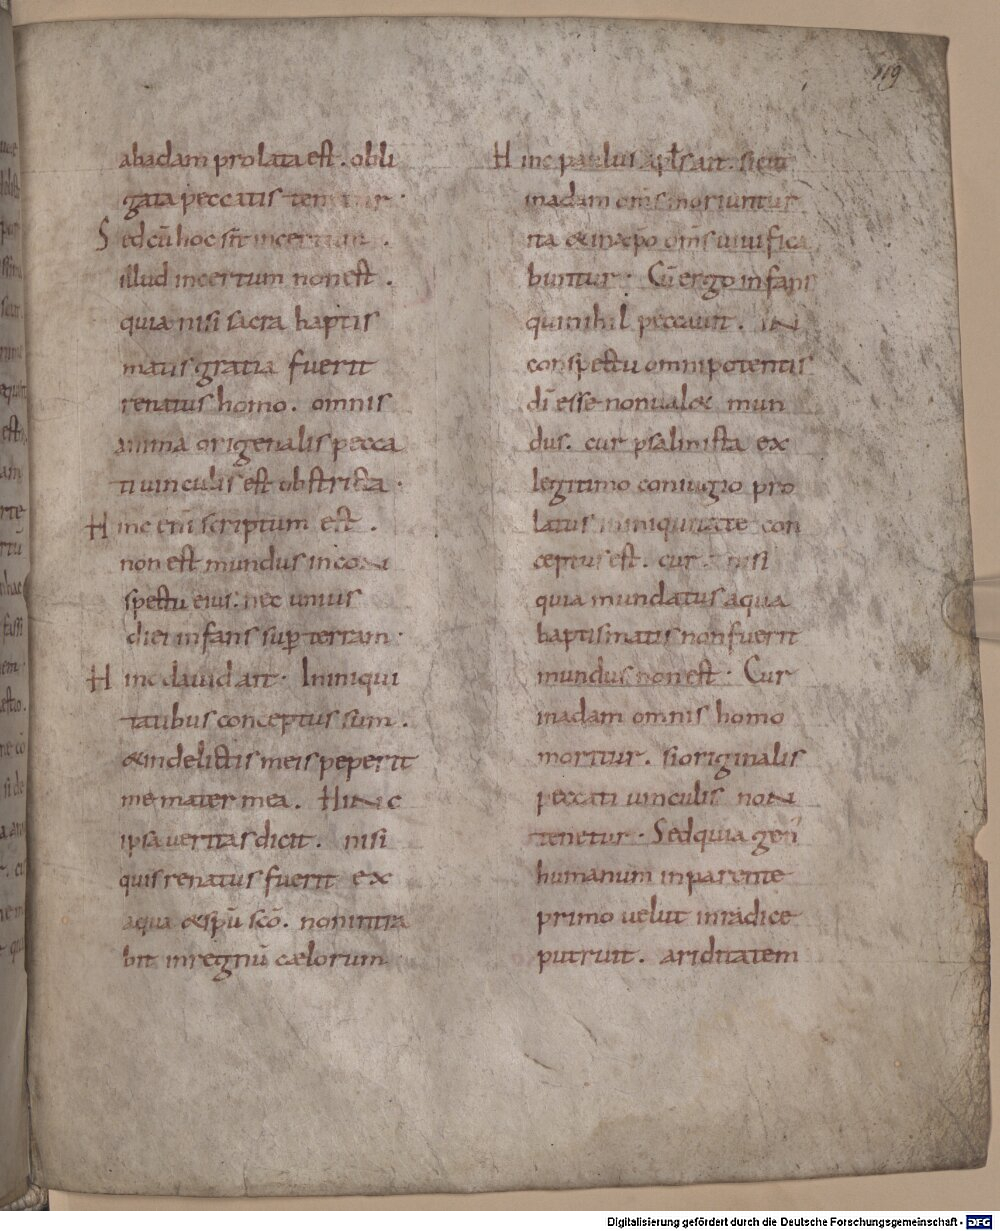 119
abadam prolata est. obli
gata peccatis tenetur.
Sed cū hoc sit incertum.
illud incertum non est.
quia nisi sacra baptis
matis gratia fuerit
renatus homo. omnis
anima origenalis pecca
ti uinculis est obstricta.
Hinc enī scriptum est.
non est mundus incon
spectu eius. nec unius
diei infans sup terram.
Hinc dauid ait. Ininiqui
tatibus conceptus sum.
& indelictis meis peperit
me mater mea. Hinc
ipsa ueritas dicit. nisi
quis renatus fuerit ex
aqua & spū scō. non intra
bit inregnū cælorum.
Hinc paulus apls ait. sicut
inadam oms moriuntur
ita & inxpō oms uiuifica
buntur. Cū ergo infans
qui nihil peccauit. in
conspectu omnipotentis
dī esse non ual& mun
dus. cur psalmista ex
legitimo coniugio pro
latus in iniquitate con
ceptus est. cur nisi
quia mundatus aqua
baptismatis non fuerit
mundus non est. Cur
inadam omnis homo
moritur. si originalis
peccati uinculis non
tenetur. Sed quia gen
humanum in parente
primo uelut inradice
putruit. ariditatem
Digitalisierung gefördert durch die Deutsche Forschungsgemeinschaft - DFG